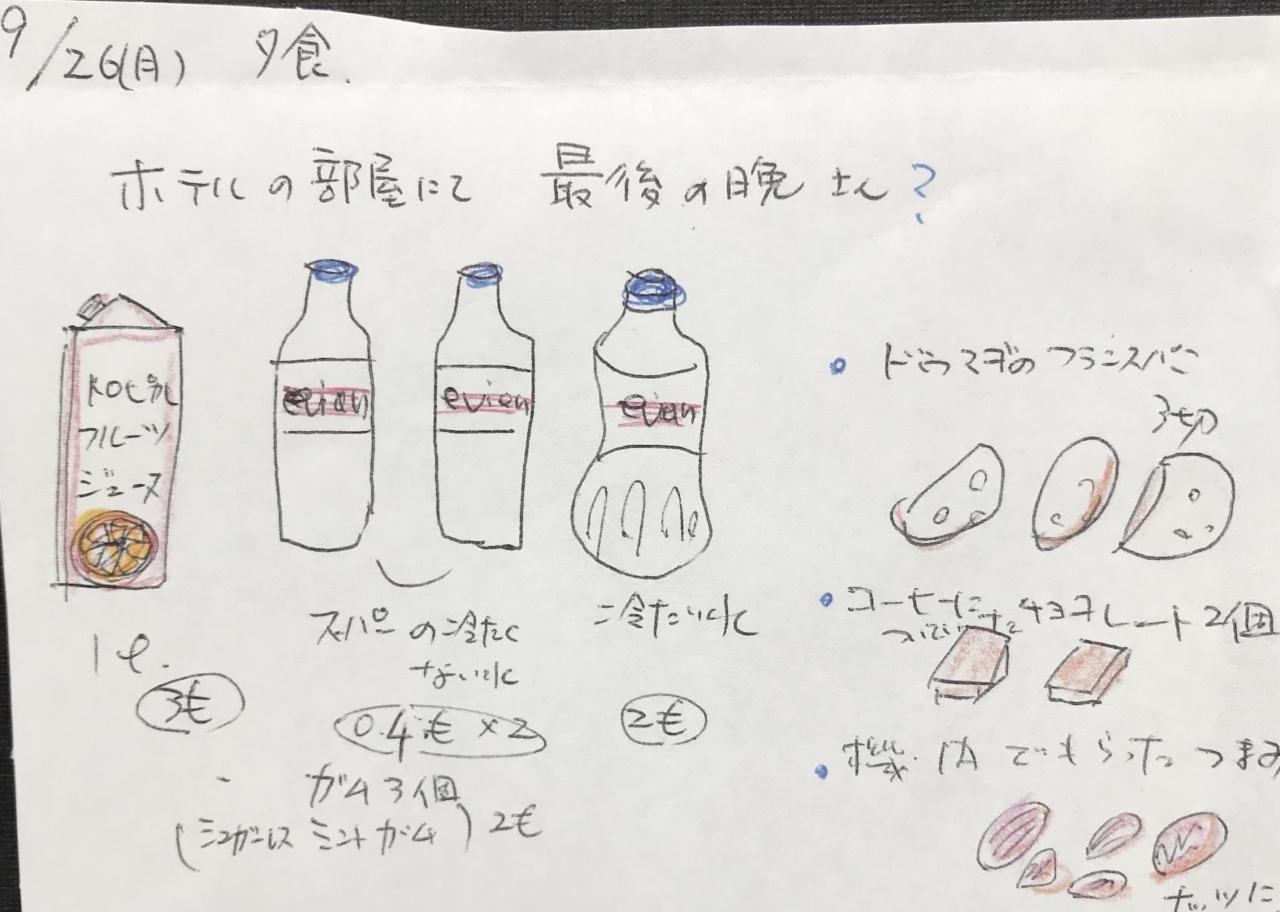 9/26(月) 夕食.
ホテルの部屋にて 最後の晩さん?
トロピカル
フルーツ
ジュース
1ℓ.
3€
evian
evian
スーパーの冷たく
ない水
0.4€×2
ガム3個
(シュガーレス ミントガム) 2€
evian
冷たい水
2€
• ドゥマゴのフランスパン
3切
• コーヒーに
ついてきた チョコレート2個
• 機内でもらったつまみ
ナッツに